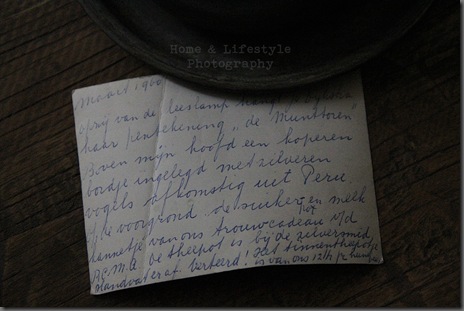 Home & Lifestyle
Photography
maart 1960
van de leeslamp hangt
haar pentekening "de Munttoren"
Boven mijn hoofd een koperen
bordje ingelegd met zilveren
vogels afkomstig uit Peru
de voorgrond de suiker en melk
kannetje van ons trouwcadeau v/d
De theepot is bij de zilversmid
Het tinnen theepotje
is van ons 12½ jr